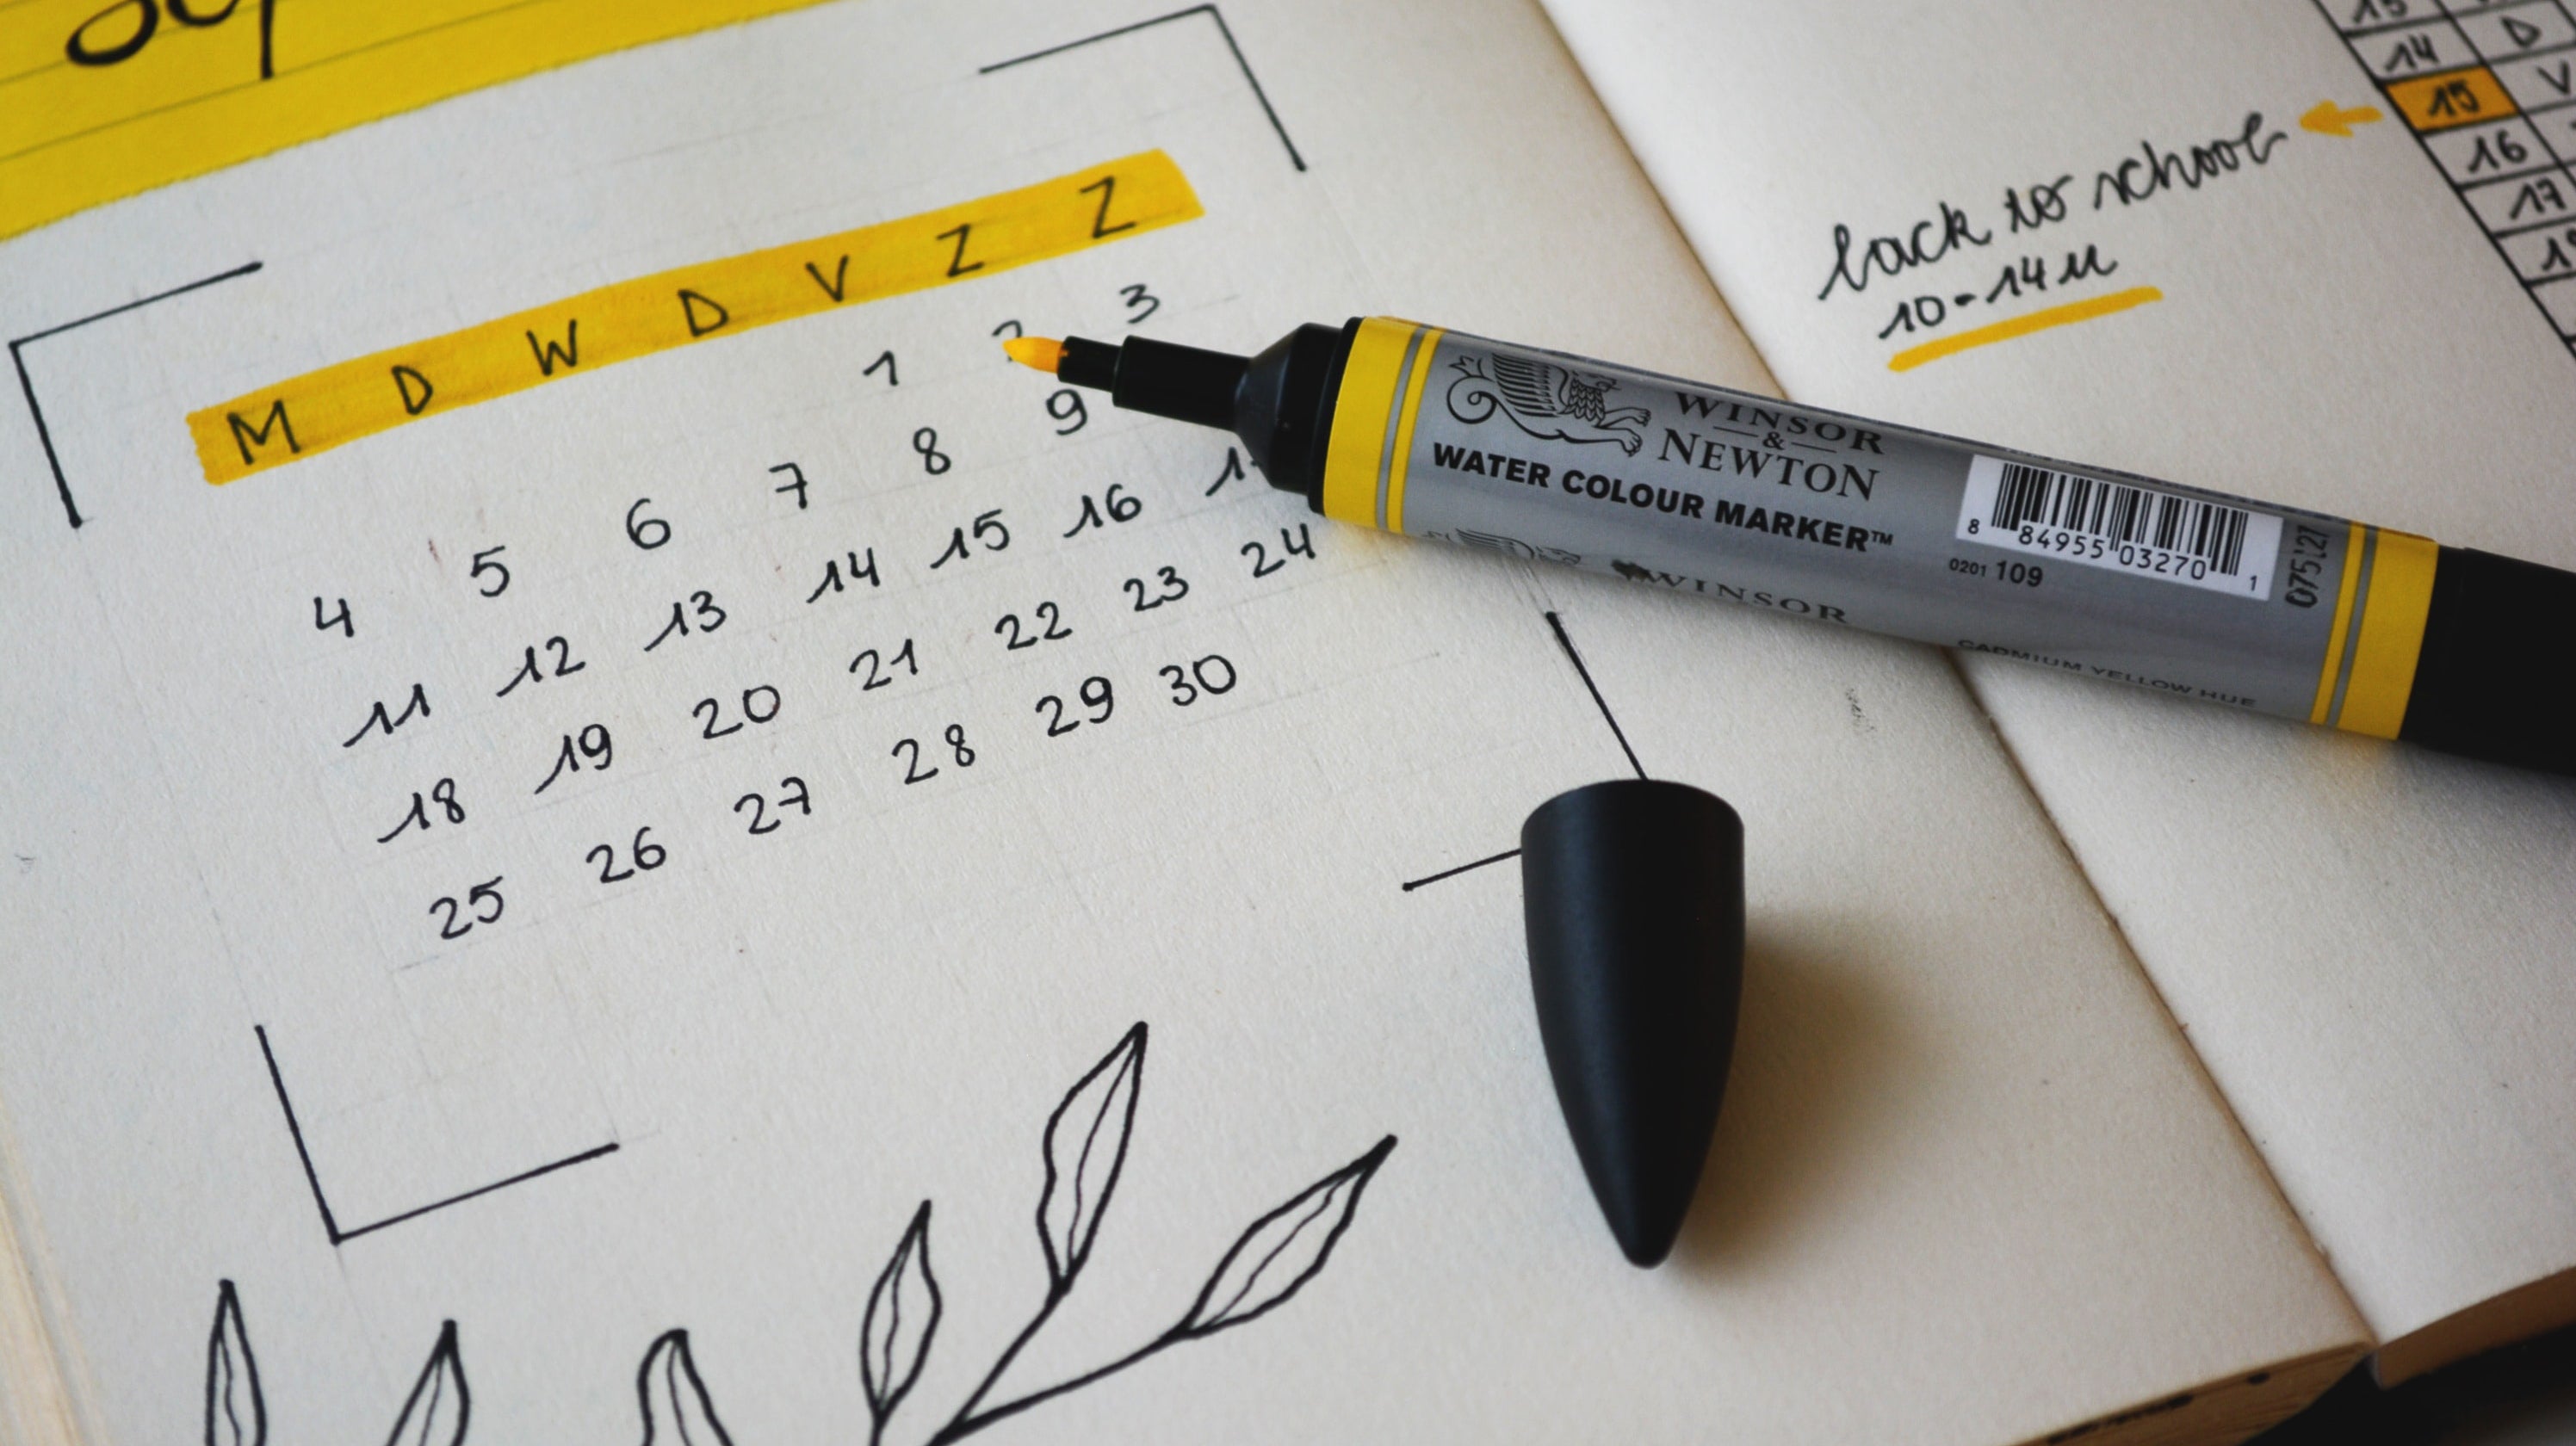 M D W D V Z Z
1 2 3
4 5 6 7 8 9
11 12 13 14 15 16
18 19 20 21 22 23 24
25 26 27 28 29 30
back to school
10-14u
15
14 D
15 V
16
17
WINSOR
&
NEWTON
WATER COLOUR MARKER™
8 84955 03270 1
0201 109
075127
WINSOR
CADMIUM YELLOW HUE